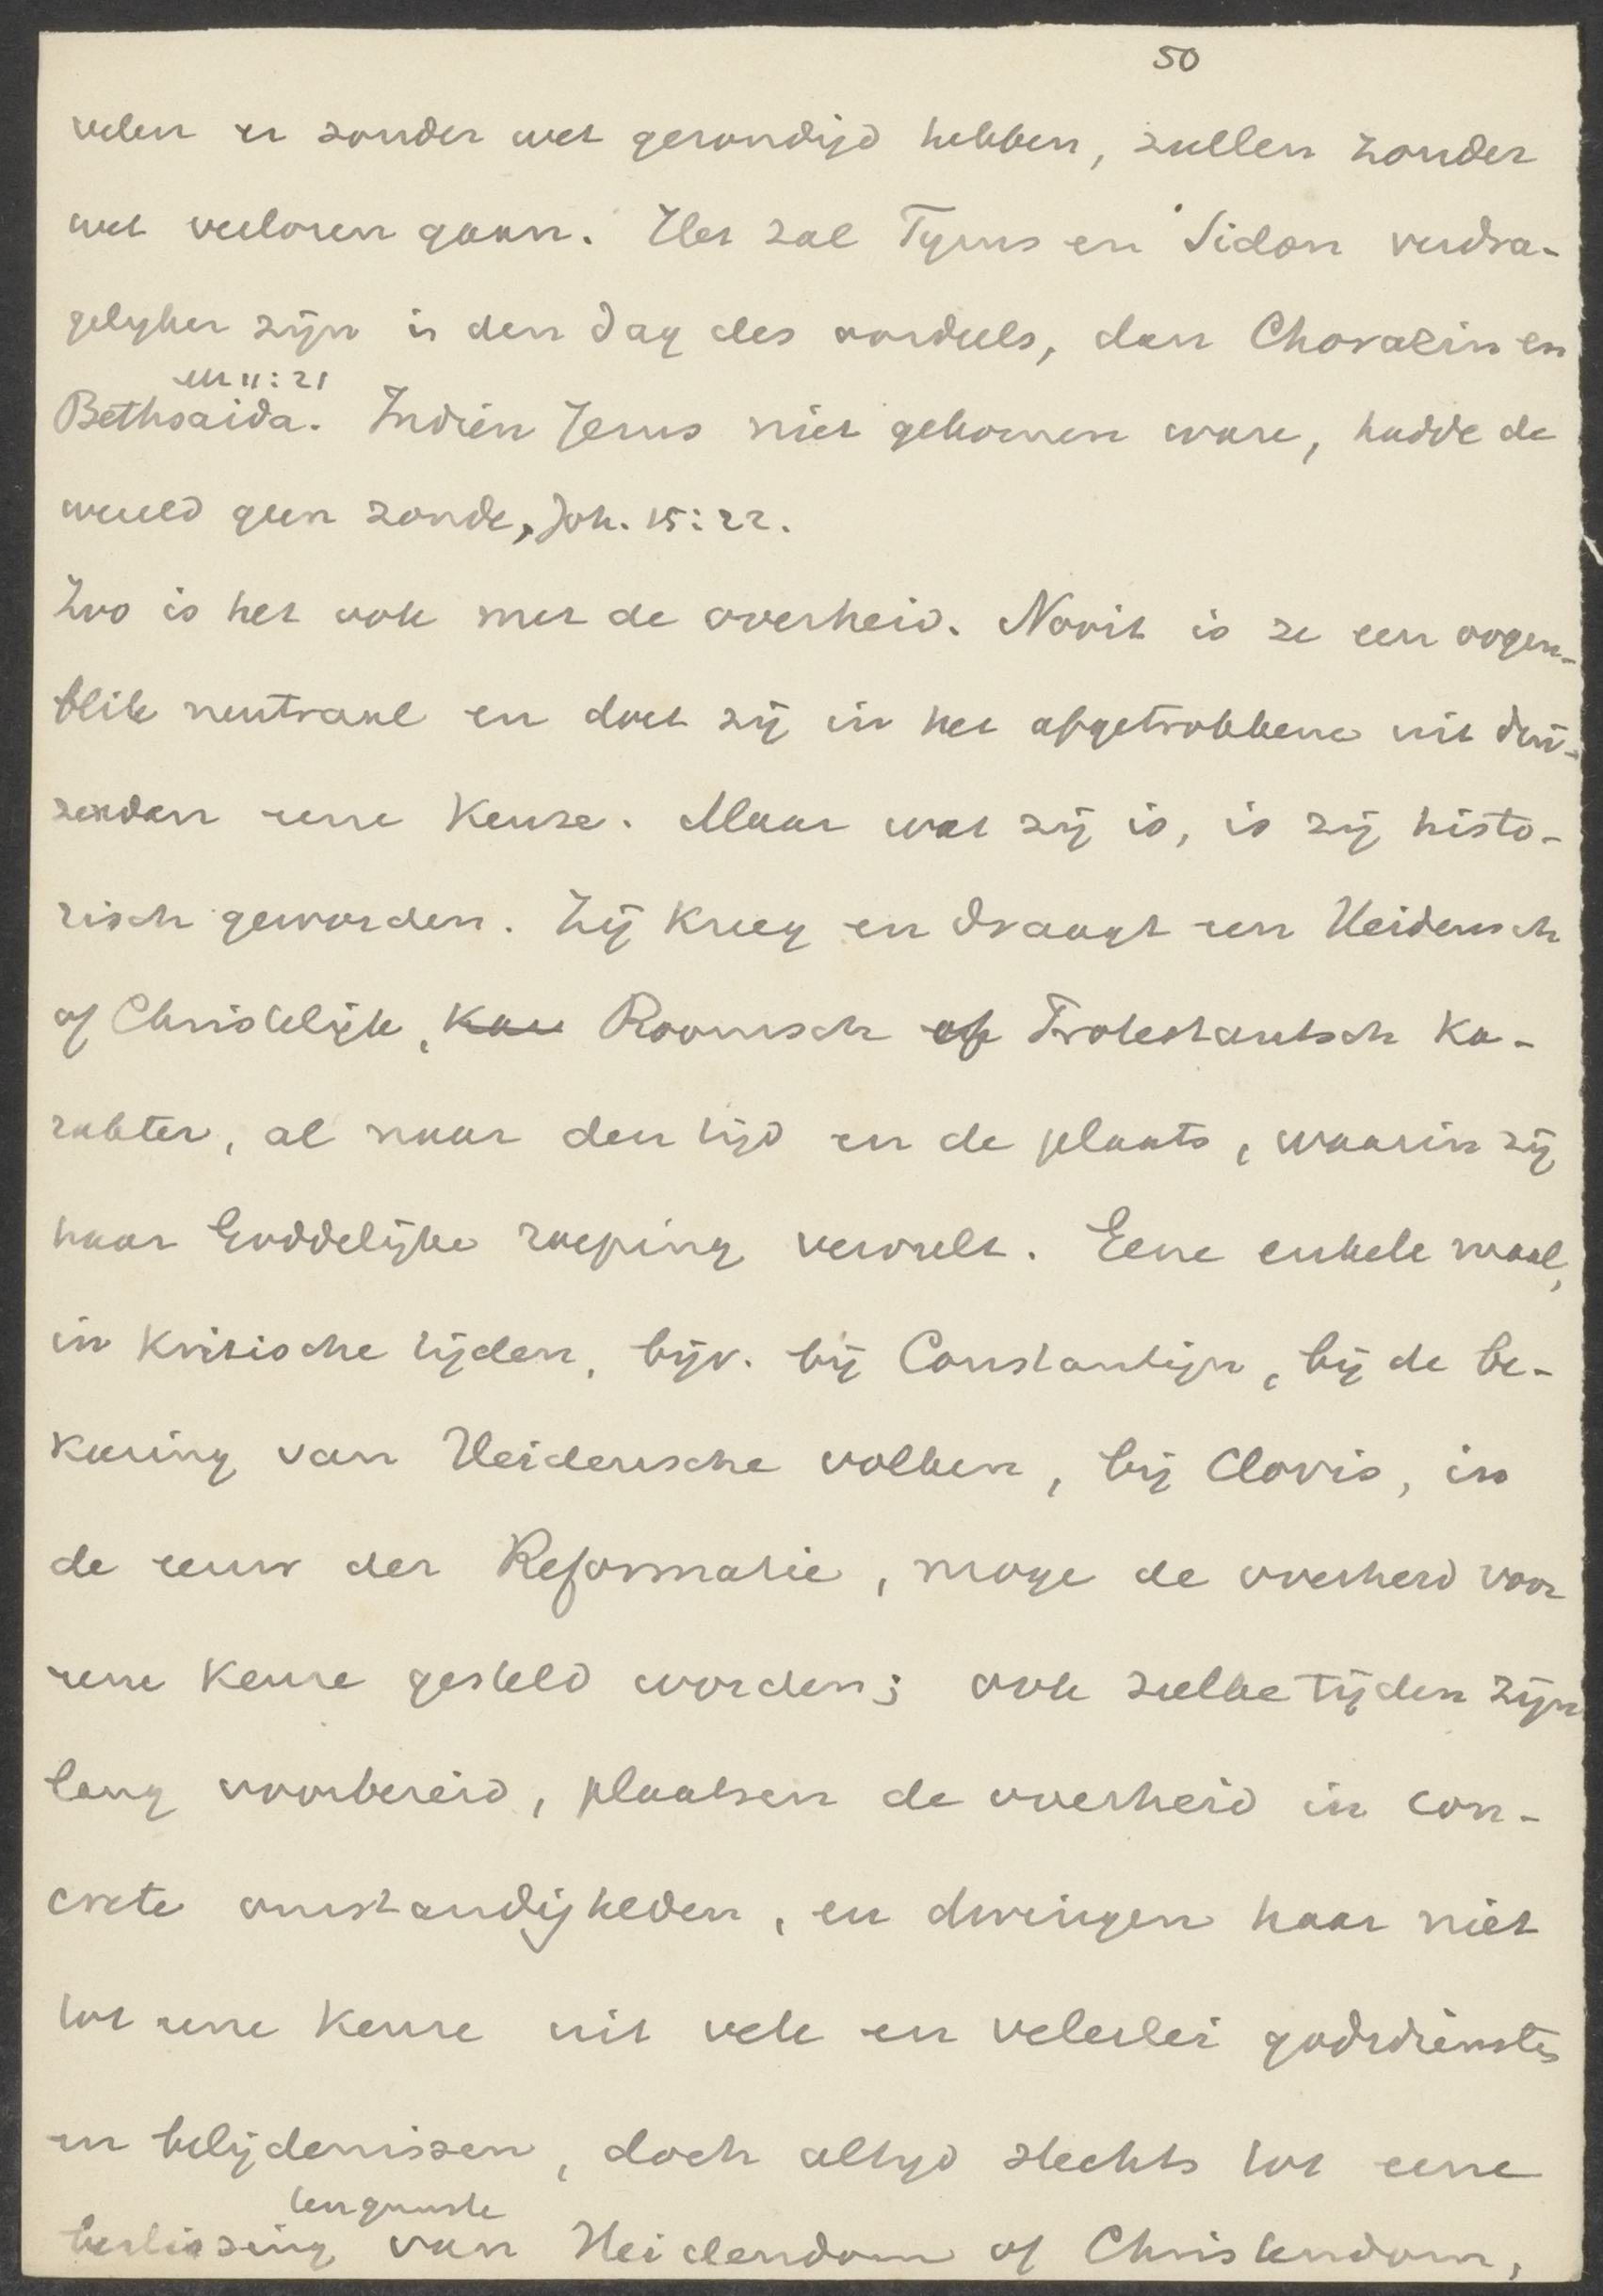 50
velen er zonder wet gezondigd hebben, zullen zonder
wet verloren gaan. Het zal Tyrus en Sidon verdra-
gelyker zijn in den dag des oordeels, dan Chorazin en
Mt 11:21
Bethsaida. Indien Jezus niet gekomen ware, hadde de
wereld geen zonde, Joh. 15:22.
Zoo is het ook met de overheid. Nooit is ze een oogen-
blik neutraal en doet zij in het afgetrokkene uit dui-
zenden eene keuze. Maar wat zij is, is zij histo-
risch geworden. Zij kreeg en draagt een Heidensch
of Christelijk, Kar Roomsch of Protestantsch ka-
rakter, al naar den tijd en de plaats, waarin zij
haar Goddelijke roeping vervult. Eene enkele maal,
in kritische tijden, bijv. bij Constantijn, bij de be-
keering van Heidensche volken, bij Clovis, in
de eeuw der Reformatie, moge de overheid voor
eene keuze gesteld worden; ook zulke tijden zijn
lang voorbereid, plaatsen de overheid in con-
crete omstandigheden, en dwingen haar niet
tot eene keuze uit vele en velerlei godsdiensten
en belijdenissen, doch altijd slechts tot eene
ten gunste
beslissing van Heidendom of Christendom,